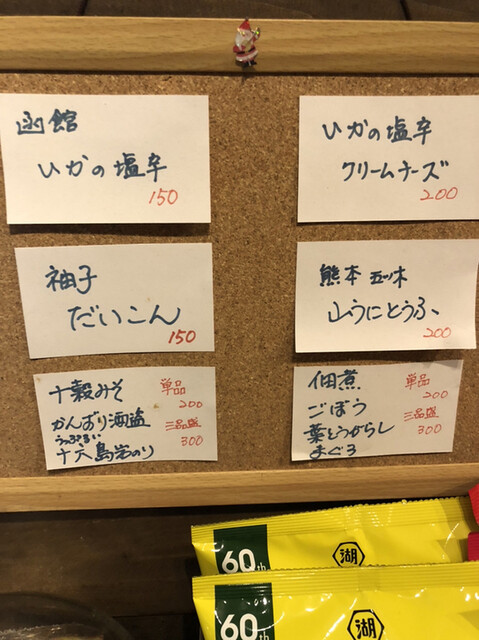 函館
いかの塩辛
150
いかの塩辛
クリームチーズ
200
柚子
だいこん
150
熊本 五ツ木
山うにとうふ
200
十穀みそ 単品
200
かんずり酒盗 三品盛
うっぷるい 300
十六島岩のり
佃煮 単品
200
ごぼう 三品盛
葉とうがらし 300
まぐろ
60th 湖
60th 湖